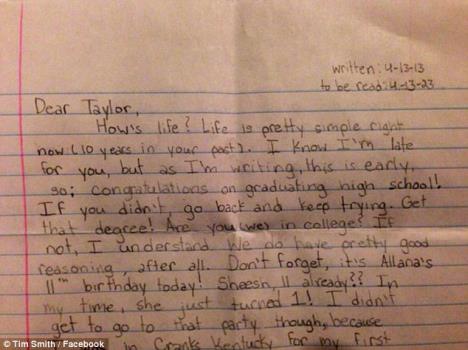 written: 4-13-13
to be read: 4-13-23
Dear Taylor,
How's life? Life is pretty simple right
now (10 years in your past). I know I'm late
for you, but as I'm writing, this is early,
so; congratulations on graduating high school!
If you didn't, go back and keep trying. Get
that degree! Are you (we) in college? If
not, I understand. We do have pretty good
reasoning, after all. Don't forget, it's Allana's
11th birthday today! Sheesh, 11 already?? In
my time, she just turned 1! I didn't
get to go to that party though, because
in Cranks Kentucky for my first
© Tim Smith / Facebook